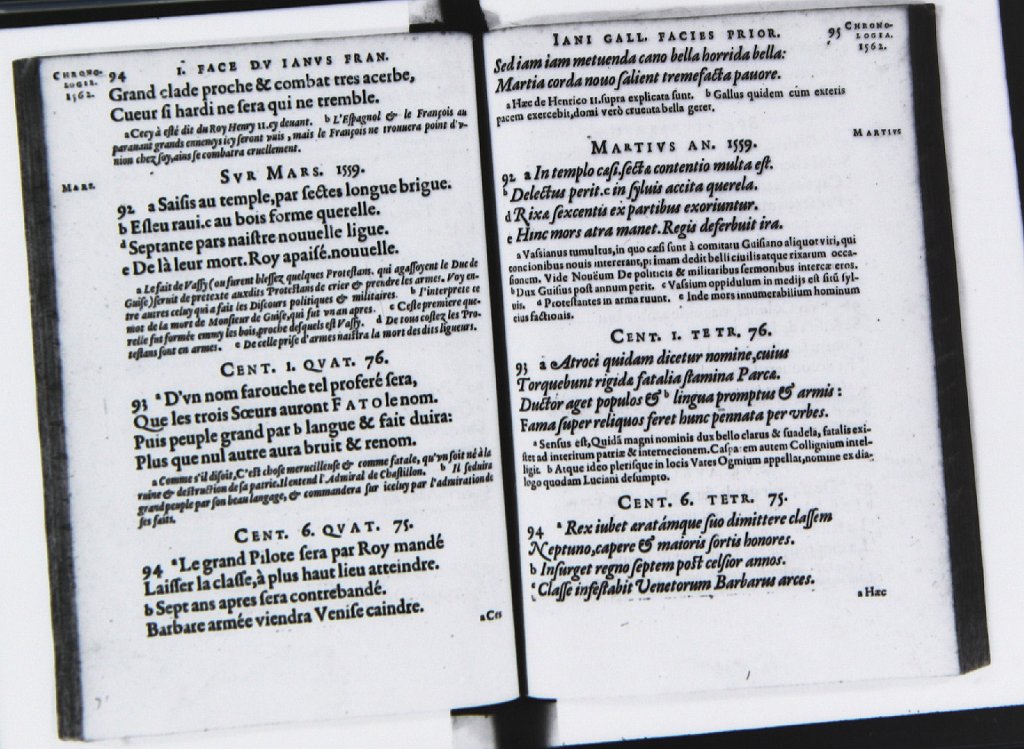 CHRONO-
LOGIE.
1562.
94
I. FACE DV IANVS FRAN.
Grand clade proche & combat tres acerbe,
Cueur si hardi ne sera qui ne tremble.
a Cecy à esté dit du Roy Henry 11. cy deuant. b L'Espagnol & le François au
parauant grands ennemys icy seront vnis, mais le François ne trouuera point d'v-
nion chez soy, ains se combatra cruellement.
MARS.
SVR MARS. 1559.
92 a Saisis au temple, par sectes longue brigue.
b Esleu raui. c au bois forme querelle.
d Septante pars naistre nouuelle ligue.
e De là leur mort. Roy apaisé. nouuelle.
a Le fait de Vassy (ou furent blessez quelques Protestans, qui agassoyent le Duc de
Guise) seruit de pretexte ausdits Protestans de crier & prendre les armes. Voy en-
tre autres celuy qui a fait les Discours politiques & militaires. b I'interprete ce
mot de la mort de Monsieur de Guise, qui fut vn an apres. c Ceste premiere que-
relle fut formée emmy les bois, proche desquels est Vassy. d De tous costez les Pro-
testans sont en armes. e De celle prise d'armes naistra la mort des dits ligueurs.
CENT. I. QVAT. 76.
93 a D'vn nom farouche tel proferé sera,
Que les trois Sœurs auront FATO le nom.
Puis peuple grand par b langue & fait duira:
Plus que nul autre aura bruit & renom.
a Comme s'il disoit, C'est chose merueilleuse & comme fatale, qu'vn soit né à la
ruine & destruction de sa patrie. Il entend l'Admiral de Chastillon. b Il seduira
grand peuple par son beau langage, & commandera sur iceluy par l'admiration de
ses faits.
CENT. 6. QVAT. 75.
94 a Le grand Pilote sera par Roy mandé
Laisser la classe, à plus haut lieu atteindre.
b Sept ans apres sera contrebandé.
Barbare armée viendra Venise caindre.
a Ces
IANI GALL. FACIES PRIOR.
95
CHRONO-
LOGIA.
1562.
Sed iam iam metuenda cano bella horrida bella:
Martia corda nouo salient tremefacta pauore.
a Hæc de Henrico 11. supra explicata sunt. b Gallus quidem cùm exteris
pacem exercebit, domi verò cruenta bella geret.
MARTIVS
MARTIVS AN. 1559.
92 a In templo cæsi. secta contentio multa est.
b Delectus perit. c in syluis accita querela.
d Rixa sexcentis ex partibus exoriuntur.
e Hinc mors atra manet. Regis deferbuit ira.
a Vassianus tumultus, in quo cæsi sunt à comitatu Guisano aliquot viri, qui
concionibus nouis intererant, primam dedit belli ciuilis atque rixarum occa-
sionem. Vide Nouëum De politicis & militaribus sermonibus inter cæteros.
b Dux Guisius post annum perit. c Vassium oppidulum in medijs est situm syl-
uis. d Protestantes in arma ruunt. e Inde mors innumerabilium hominum
eius factionis.
CENT. I. TETR. 76.
93 a Atroci quidam dicetur nomine, cuius
Torquebunt rigidæ fatalia stamina Parcæ.
Ductor aget populos & b lingua promptus & armis:
Fama super reliquos feret hunc pennata per vrbes.
a Sensus est, Quidã magni nominis dux bello clarus & suadela, fatalis exi-
stet ad interitum patriæ & internecionem. Casparem autem Collignium intel-
ligit. b Atque ideo plerisque in locis Vates Ogmium appellat, nomine ex dia-
logo quodam Luciani desumpto.
CENT. 6. TETR. 75.
94 a Rex iubet aratámque suo dimittere classem
Neptuno, capere & maioris sortis honores.
b Insurget regno septem post celsior annos.
c Classe infestabit Venetorum Barbarus arces.
a Hæc